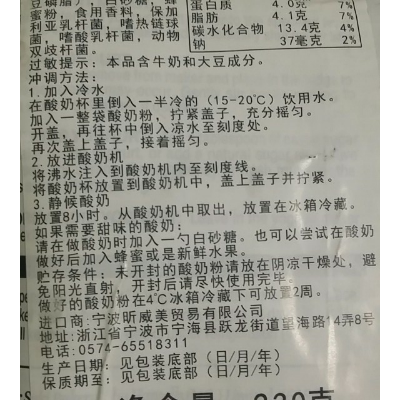 豆磷脂），白砂糖，蜂
蜜粉，食用香料，保加
利亚乳杆菌，嗜热链球
菌，嗜酸乳杆菌，动物
双歧杆菌。
蛋白质 4.0克 7%
脂肪 4.1克 7%
碳水化合物 13.4克 4%
钠 37毫克 2%
过敏提示：本品含牛奶和大豆成分。
冲调方法：
1.加入冷水
在酸奶杯里倒入一半冷的（15-20℃）饮用水。
加入一整袋酸奶粉，拧紧盖子，充分摇匀。
开盖，再往杯中倒入凉水至刻度处。
再次盖上盖子，接着摇匀。
2.放进酸奶机
将沸水注入到酸奶机内至刻度线。
将酸奶杯放置到酸奶机中，盖上盖子并拧紧。
3.静候酸奶
放置8小时。从酸奶机中取出，放置在冰箱冷藏。
如果需要甜味的酸奶：
请在做酸奶时加入一勺白砂糖。也可以尝试在酸奶
做好后加入蜂蜜或是新鲜水果。
贮存条件：未开封的酸奶粉请放在阴凉干燥处，避
免阳光直射，开封后请尽快使用完毕。
做好的酸奶粉在4℃冰箱冷藏下可放置2周。
进口商：宁波昕威美贸易有限公司
地址：浙江省宁波市宁海县跃龙街道望海路14弄8号
电话：0574-65518311
生产日期：见包装底部（日/月/年）
保质期至：见包装底部（日/月/年）
净含量 220克